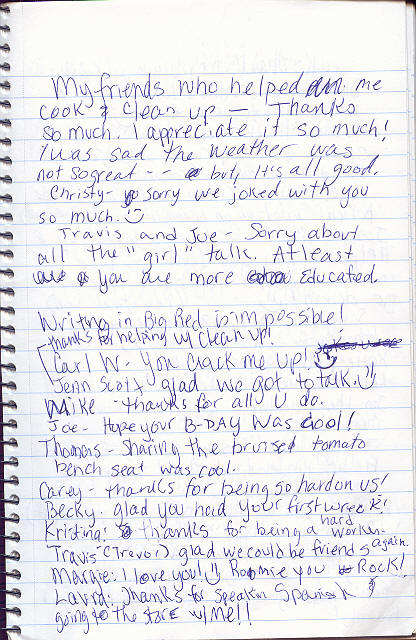 My friends who helped me
cook & clean up — Thanks
so much. I appreciate it so much!
I was sad the weather was
not so great -- but, it's all good.
Christy- sorry we joked with you
so much. :)
Travis and Joe- Sorry about
all the "girl" talk. Atleast
you are more Educated.
Writing in Big Red is impossible!
thanks for helping w/ clean up!
Carl W- You crack me up! :)
Jenn Scott, glad we got to talk. :)
Mike - thanks for all U do.
Joe- Hope your B-DAY was cool!
Thomas- Sharing the bruised tomato
bench seat was cool.
Carey- thanks for being so hard on us!
Becky- glad you had your first wreck!
Kristina: thanks for being a hard worker-
Travis (Trevor), glad we could be friends again.
Margie: I love you! :) Roomie you Rock!
Laura: Thanks for speakin Spanish &
going to the store w/ Me!!